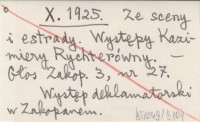 X. 1925. Ze sceny
i estrady. Występy Kazi-
miery Rychterówny. –
Głos Zakop. 3, nr 27.
Występ deklamatorski
w Zakopanem.